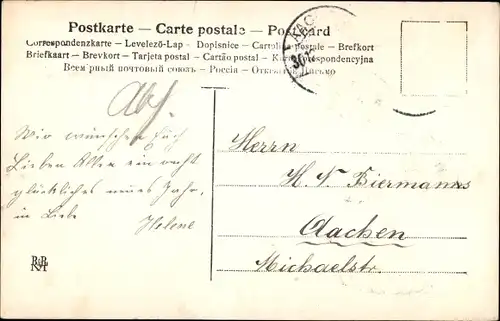 Postkarte — Carte postale — Postcard
Correspondenzkarte — Levelező-Lap — Dopisnice — Cartolina postale — Brefkort
Briefkaart — Brevkort — Tarjeta postal — Cartão postal — Karta korespondencyjna
Всемірный почтовый союзъ — Россія — Открытое письмо
Abs
Wir wünschen Euch
Lieben Allen ein recht
glückliches neues Jahr,
in Liebe
Helene
Herrn
H. N. Biermanns
Aachen
Michaelstr.